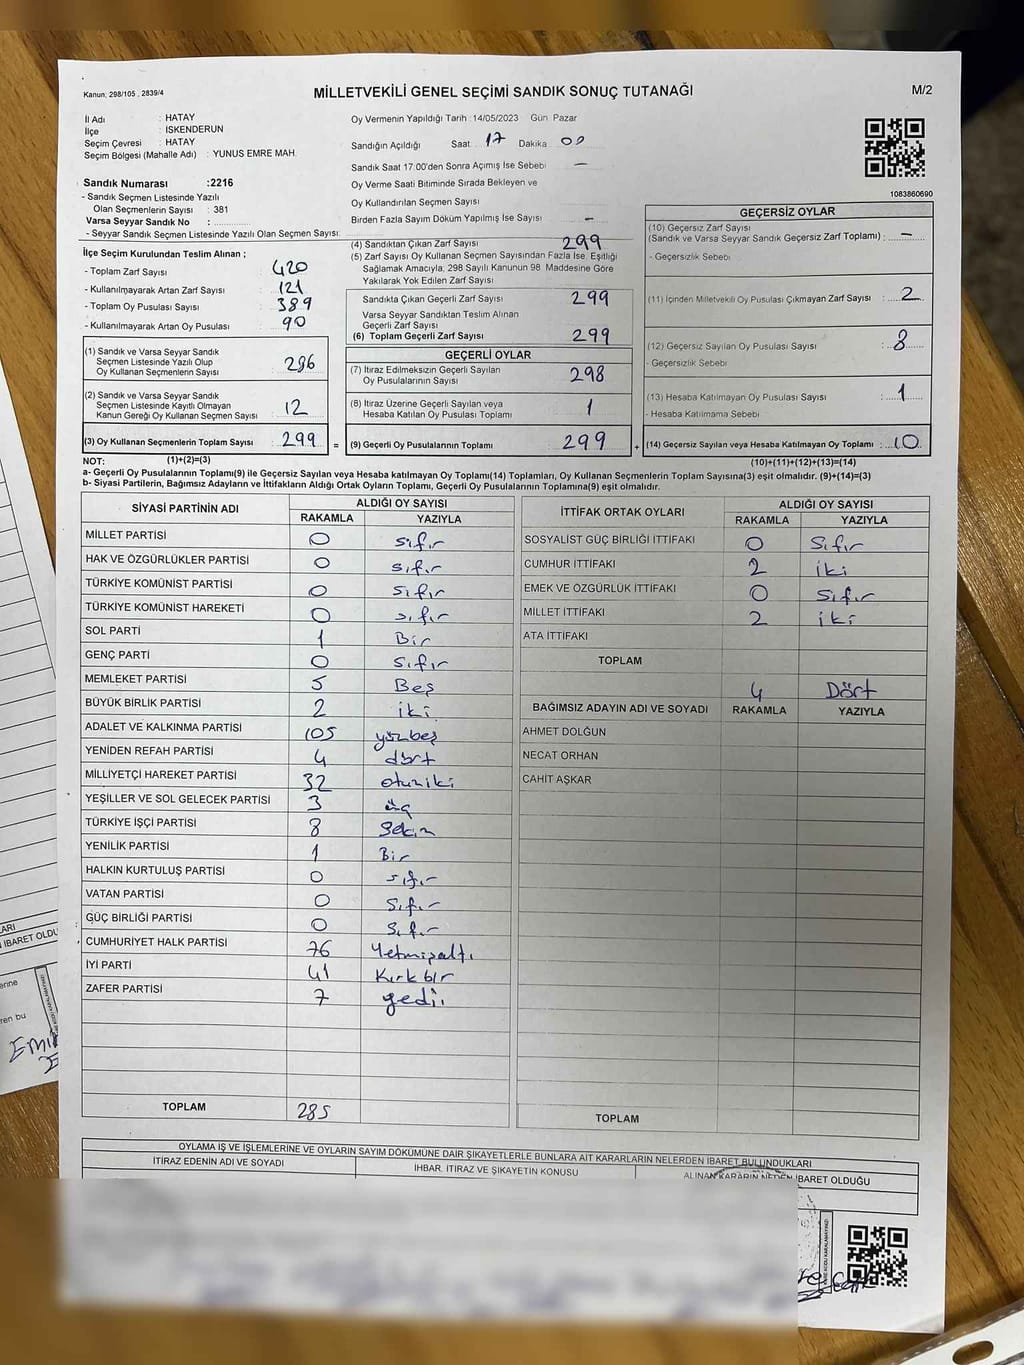 Kanun; 298/105 , 2839/4
MİLLETVEKİLİ GENEL SEÇİMİ SANDIK SONUÇ TUTANAĞI
M/2
İl Adı : HATAY
İlçe : İSKENDERUN
Seçim Çevresi : HATAY
Seçim Bölgesi (Mahalle Adı) : YUNUS EMRE MAH.
Sandık Numarası :2216
- Sandık Seçmen Listesinde Yazılı
Olan Seçmenlerin Sayısı : 381
Varsa Seyyar Sandık No :
- Seyyar Sandık Seçmen Listesinde Yazılı Olan Seçmen Sayısı:
Oy Vermenin Yapıldığı Tarih :14/05/2023 Gün Pazar
Sandığın Açıldığı Saat 17 Dakika 00
Sandık Saat 17:00'den Sonra Açımış İse Sebebi —
Oy Verme Saati Bitiminde Sırada Bekleyen ve
Oy Kullandırılan Seçmen Sayısı
Birden Fazla Sayım Döküm Yapılmış İse Sayısı –
1083860690
İlçe Seçim Kurulundan Teslim Alınan ;
- Toplam Zarf Sayısı : 420
- Kullanılmayarak Artan Zarf Sayısı : 121
- Toplam Oy Pusulası Sayısı : 389
- Kullanılmayarak Artan Oy Pusulası : 90
(1) Sandık ve Varsa Seyyar Sandık
Seçmen Listesinde Yazılı Olup
Oy Kullanan Seçmenlerin Sayısı : 286
(2) Sandık ve Varsa Seyyar Sandık
Seçmen Listesinde Kayıtlı Olmayan
Kanun Gereği Oy Kullanan Seçmen Sayısı : 12
(3) Oy Kullanan Seçmenlerin Toplam Sayısı : 299 =
(4) Sandıktan Çıkan Zarf Sayısı 299
(5) Zarf Sayısı Oy Kullanan Seçmen Sayısından Fazla İse, Eşitliği
Sağlamak Amacıyla, 298 Sayılı Kanunun 98. Maddesine Göre
Yakılarak Yok Edilen Zarf Sayısı
Sandıkta Çıkan Geçerli Zarf Sayısı 299
Varsa Seyyar Sandıktan Teslim Alınan
Geçerli Zarf Sayısı
(6) Toplam Geçerli Zarf Sayısı 299
GEÇERLİ OYLAR
(7) İtiraz Edilmeksizin Geçerli Sayılan
Oy Pusulalarının Sayısı 298
(8) İtiraz Üzerine Geçerli Sayılan veya
Hesaba Katılan Oy Pusulası Toplamı 1
(9) Geçerli Oy Pusulalarının Toplamı 299 +
GEÇERSİZ OYLAR
(10) Geçersiz Zarf Sayısı
(Sandık ve Varsa Seyyar Sandık Geçersiz Zarf Toplamı) : –
- Geçersizlik Sebebi
(11) İçinden Milletvekili Oy Pusulası Çıkmayan Zarf Sayısı : 2
(12) Geçersiz Sayılan Oy Pusulası Sayısı : 8
- Geçersizlik Sebebi
(13) Hesaba Katılmayan Oy Pusulası Sayısı : 1
- Hesaba Katılmama Sebebi
(14) Geçersiz Sayılan veya Hesaba Katılmayan Oy Toplamı : 10
NOT: (1)+(2)=(3)
(10)+(11)+(12)+(13)=(14)
a- Geçerli Oy Pusulalarının Toplamı(9) ile Geçersiz Sayılan veya Hesaba katılmayan Oy Toplamı(14) Toplamları, Oy Kullanan Seçmenlerin Toplam Sayısına(3) eşit olmalıdır. (9)+(14)=(3)
b- Siyasi Partilerin, Bağımsız Adayların ve İttifakların Aldığı Ortak Oyların Toplamı, Geçerli Oy Pusulalarının Toplamına(9) eşit olmalıdır.
SİYASİ PARTİNİN ADI ALDIĞI OY SAYISI
RAKAMLA YAZIYLA
MİLLET PARTİSİ 0 sıfır
HAK VE ÖZGÜRLÜKLER PARTİSİ 0 sıfır
TÜRKİYE KOMÜNİST PARTİSİ 0 sıfır
TÜRKİYE KOMÜNİST HAREKETİ 0 sıfır
SOL PARTİ 1 Bir
GENÇ PARTİ 0 sıfır
MEMLEKET PARTİSİ 5 Beş
BÜYÜK BİRLİK PARTİSİ 2 iki
ADALET VE KALKINMA PARTİSİ 105 yüzbeş
YENİDEN REFAH PARTİSİ 4 dört
MİLLİYETÇİ HAREKET PARTİSİ 32 otuziki
YEŞİLLER VE SOL GELECEK PARTİSİ 3 üç
TÜRKİYE İŞÇİ PARTİSİ 8 Sekiz
YENİLİK PARTİSİ 1 Bir
HALKIN KURTULUŞ PARTİSİ 0 sıfır
VATAN PARTİSİ 0 Sıfır
GÜÇ BİRLİĞİ PARTİSİ 0 Sıfır
CUMHURİYET HALK PARTİSİ 76 Yetmişaltı
İYİ PARTİ 41 Kırkbir
ZAFER PARTİSİ 7 yedi
TOPLAM 285
İTTİFAK ORTAK OYLARI ALDIĞI OY SAYISI
RAKAMLA YAZIYLA
SOSYALİST GÜÇ BİRLİĞİ İTTİFAKI 0 Sıfır
CUMHUR İTTİFAKI 2 iki
EMEK VE ÖZGÜRLÜK İTTİFAKI 0 Sıfır
MİLLET İTTİFAKI 2 iki
ATA İTTİFAKI
TOPLAM
4 Dört
BAĞIMSIZ ADAYIN ADI VE SOYADI RAKAMLA YAZIYLA
AHMET DOLĞUN
NECAT ORHAN
CAHİT AŞKAR
TOPLAM
OYLAMA İŞ VE İŞLEMLERİNE VE OYLARIN SAYIM DÖKÜMÜNE DAİR ŞİKAYETLERLE BUNLARA AİT KARARLARIN NELERDEN İBARET BULUNDUKLARI
İTİRAZ EDENİN ADI VE SOYADI İHBAR, İTİRAZ VE ŞİKAYETİN KONUSU ALINAN KARARIN NEDEN İBARET OLDUĞU